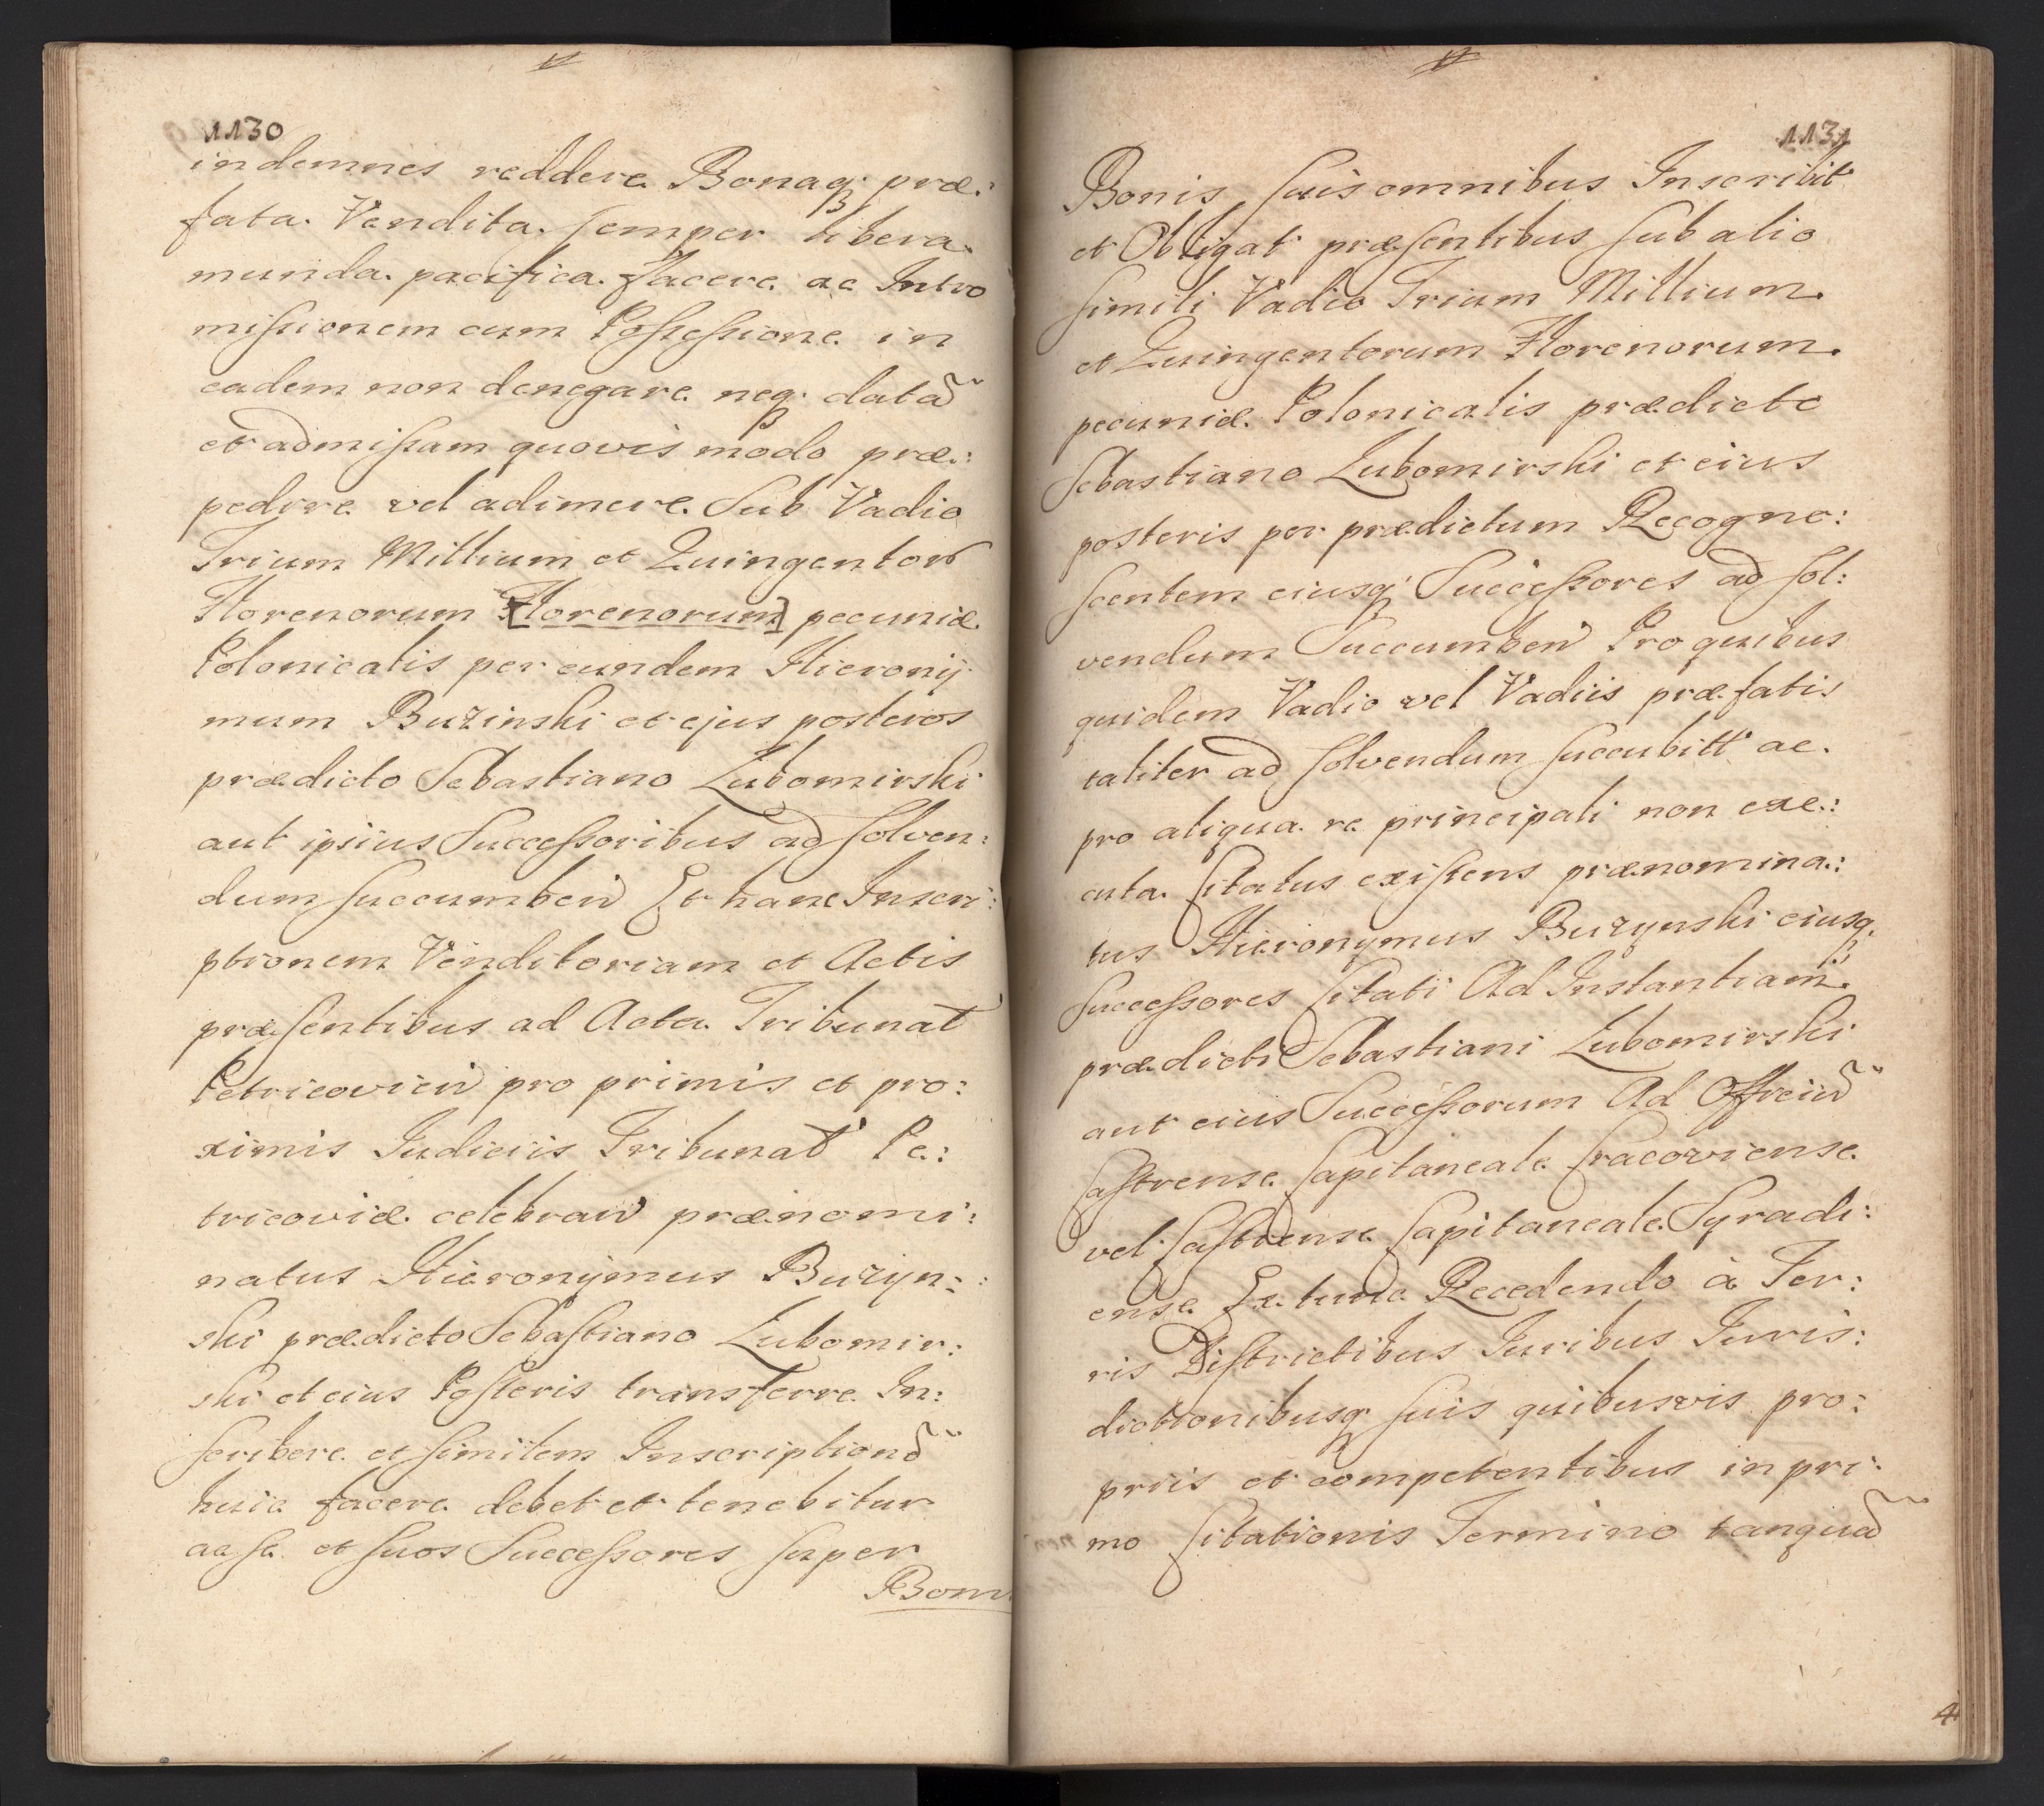 1130
indemnes reddere Bonaq. præ:
fata Vendita semper libera
munda pacifica facere ac Intro
missionem cum Possessione in
eadem non denegare neq. datã
et admissam quovis modo præ:
pedire vel adimere Sub Vadio
Trium Millium et Quingentor
Florenorum [Florenorum] pecuniæ
Polonicalis per eundem Hierony
mum Buzinski et ejus posteros
prædicto Sebastiano Lubomirski
aut ipsius Successoribus ad solven:
dum succumben Et hanc Inscri:
ptionem Venditoriam et Actis
præsentibus ad Acta Tribunat
Petricovien pro primis et pro:
ximis Iudiciis Tribunat Pe:
tricoviæ celebran prænomi:
natus Hieronÿmus Buzyn:
ski prædicto Sebastiano Lubomir:
ski et eius Posteris transferre In:
scribere et similem Inscriptionẽ
huic facere debet et tenebitur
ac se et suos Successores super
Bonis
1131
Bonis suis omnibus Inscribit
et Obligat præsentibus sub alio
simili Vadio Trium Millium
et Quingentorum Florenorum
pecuniæ Polonicalis prædicto
Sebastiano Lubomirski et eius
posteris per prædictum Recogno:
scentem eiusq Successores ad sol:
vendum Succumben Pro quibus
quidem Vadio vel Vadiis præfatis
taliter ad solvendum succubitt ac
pro aliqua re principali non exe:
cuta Citatus existens prænomina:
tus Hieronymus Buzynski eiusq.
Successores Citati Ad Instantiam
prædicti Sebastiani Lubomirski
aut eius Successorum Ad Officiũ
Castrense Capitaneale Cracoviense
vel Castrense Capitaneale Syradi:
ense Ex tunc Recedendo à Ter:
ris Districtibus Iuribus Iuris:
dictionibusq suis quibusvis pro:
priis et competentibus in pri:
mo Citationis Termino tanquã
4